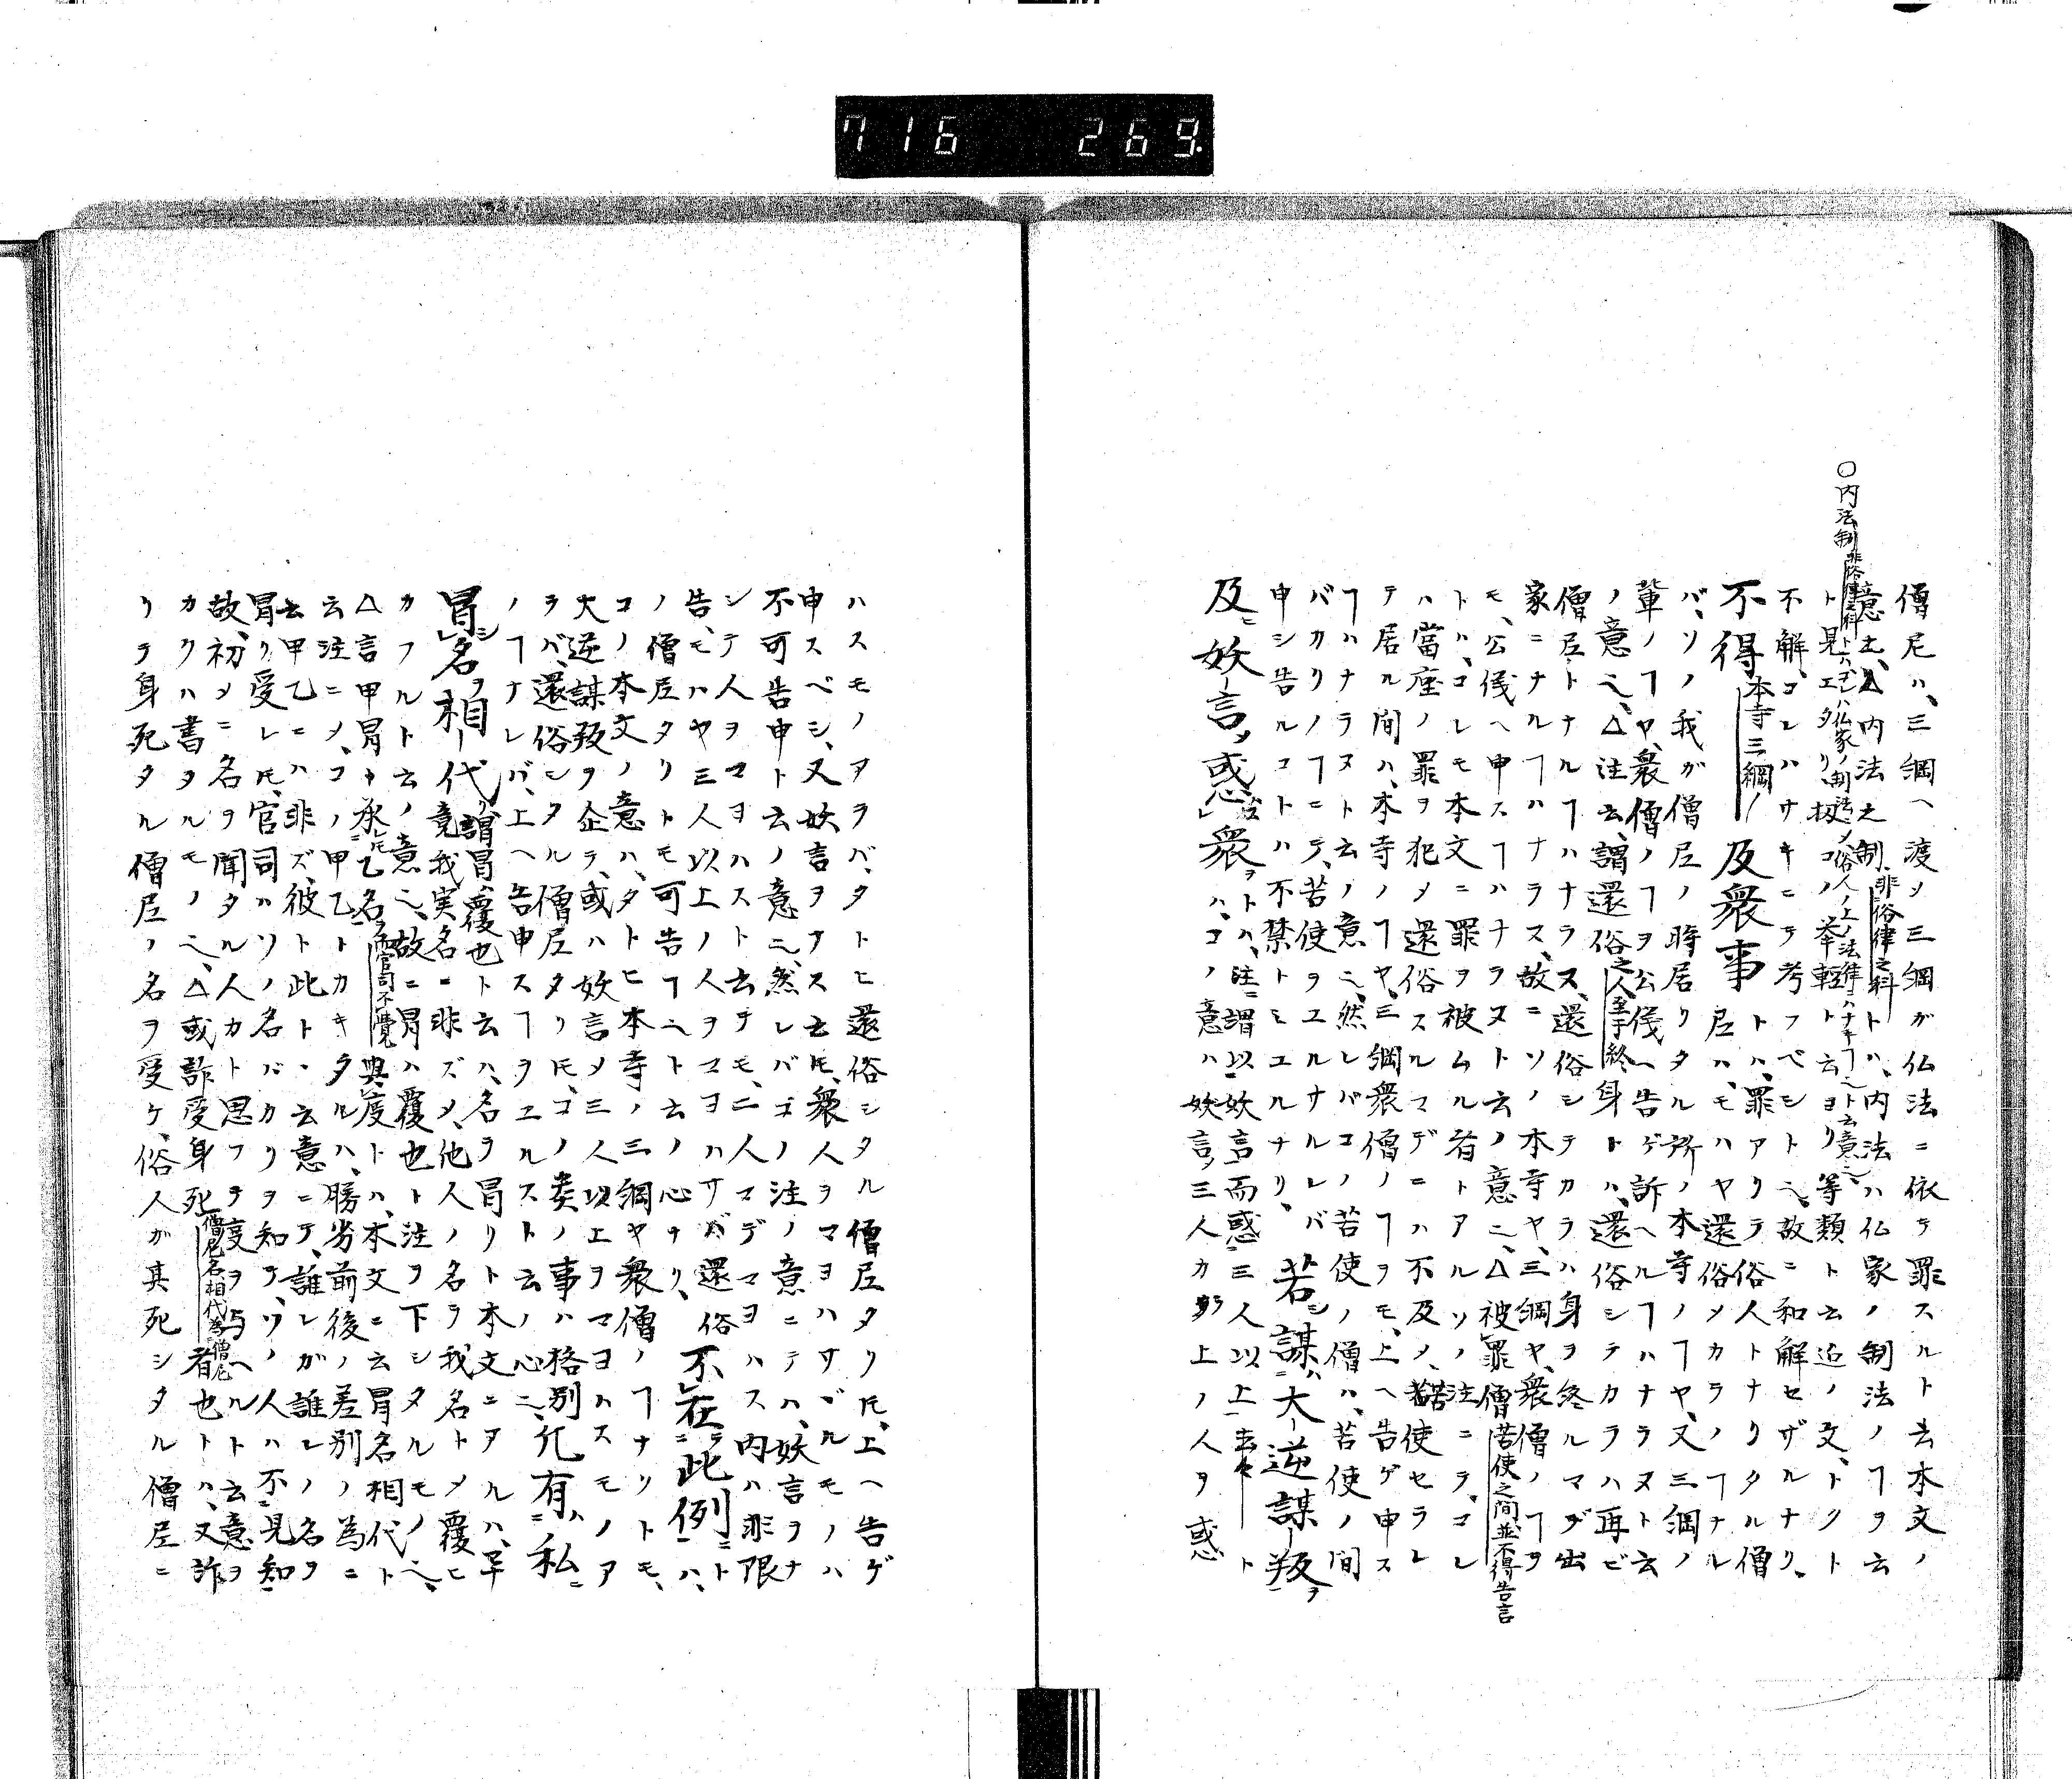 716 269.
僧尼ハ、三綱ヘ渡メ三綱ガ仏法ニ依テ罪スルト云本文ノ
意也、△内法之制、非俗律之科トハ、内法ハ仏家ノ制法ノヿヲ云
○内法制非俗律之科トハ、コレハ仏家ノ制法ニメ俗人ノ上ノ法律ニハナキヿヘト云意ヘ
ト見エタリ、扨コノ挙軽ト云ヨリ等類ト云迄ノ文、トクト
不解、コレハサキニテ考フベシトヘ、故ニ和解セザルナリ、
不得本寺三綱ノ及衆事トハ、罪アリテ俗人トナリタル僧
尼ハ、モハヤ還俗メカラノヿナル
バ、ソノ我ガ僧尼ノ時居リタル所ノ本寺ノヿヤ、又三綱ノ
輩ノヿヤ、衆僧ノヿヲ公儀ヘ告ゲ訴ヘルヿハナラヌト云
ノ意ヘ、△注云、謂還俗之人至于終身トハ、還俗シテカラハ再ビ
僧尼トナルヿハナラヌ、還俗シテカラハ身ヲ終ルマデ出
家ニナルヿハナラス、故ニソノ本寺ヤ、三綱ヤ、衆僧ノヿヲ
モ、公儀ヘ申スヿハナラヌト云ノ意ニ、△被罪僧苦使之間、並不得告言
トハ、コレモ本文ニ罪ヲ被ムル者トアルソノ注ニテ、コレ
ハ當座ノ罪ヲ犯メ還俗スルマデニハ不及メ、苦使セラレ
テ居ル間ハ、本寺ノヿヤ、三綱衆僧ノヿヲモ、上ヘ告ゲ申ス
ヿハナラヌト云ノ意ニ、然レバコノ苦使ノ僧ハ、苦使ノ間
バカリノヿニテ、苦使ヲユルナルレバ
申シ告ルコトハ不禁トミエルナリ、若シ謀ニ大逆謀叛ヲ
及ニ妖言ヲ惑レ衆ヲトハ、注ニ謂以妖言而惑三人以上ト云々ト
ハ、コノ意ハ妖言ノ三人カ上ノ人ヲ惑
ハスモノヲラバ、タトヒ還俗シタル僧尼タリ𪜈、上ヘ告ゲ
申スベシ、又妖言ヲナス云𪜈、衆人ヲマヨハサヾルモノハ
不可告申ト云ノ意ニ、然レバゴノ注ノ意ニテハ、妖言ヲナ
シテ人ヲマヨハスト云テモ、二人マデマヨハス内ハ非限
告、モハヤ三人以上ノ人ヲマヨハサバ還俗不在ニ此例ニトハ、
ノ僧尼タリトモ可告ヿヘト云ノ心ナリ、
コノ本文ノ意ハ、タトヒ本寺ノ三綱ヤ衆僧ノヿナリトモ、
大逆謀叛ヲ企ラ、或ハ妖言メ三人以上ヲマヨハスモノア
ラバ、還俗シタル僧尼タリ𪜈、コノ類ノ事ハ格別、凡有ニ私ニ
ノヿナレバ、上ヘ告申スヿヲユルスト云ノ心ニ、
冒シ名ヲ相代リ謂冒、覆也ト云ハ、名ヲ冒リト本文ニアルハ、早
竟我実名ニ非ズメ、他人ノ名ヲ我名トメ覆ヒ
カフルト云ノ意ヘ、故ニ冒ハ覆也ト注ヲ下シタルモノヘ、
△言甲冒ト承乙名而官司不覺與度トハ、本文ニ云冒名相代ト
云注ニメ、コノ甲乙トカキタルハ、勝劣前後ノ差別ノ為ニ
云甲乙ニハ非ズ、彼ト此ト、云意ニテ、誰レガ誰レノ名ヲ
冒リ受レ𪜈、官司ハソノ名バカリヲ知テ、ソノ人ハ不見知
故、初メニ名ヲ聞タル人カト思フテ度ヲ与ヘルト云意ヲ
カクハ書タルモノヘ、△或詐受身死僧尼名相代為僧尼者也トハ、又詐
リテ身死タル僧尼ノ名ヲ受ケ、俗人が其死シタル僧尼ニ